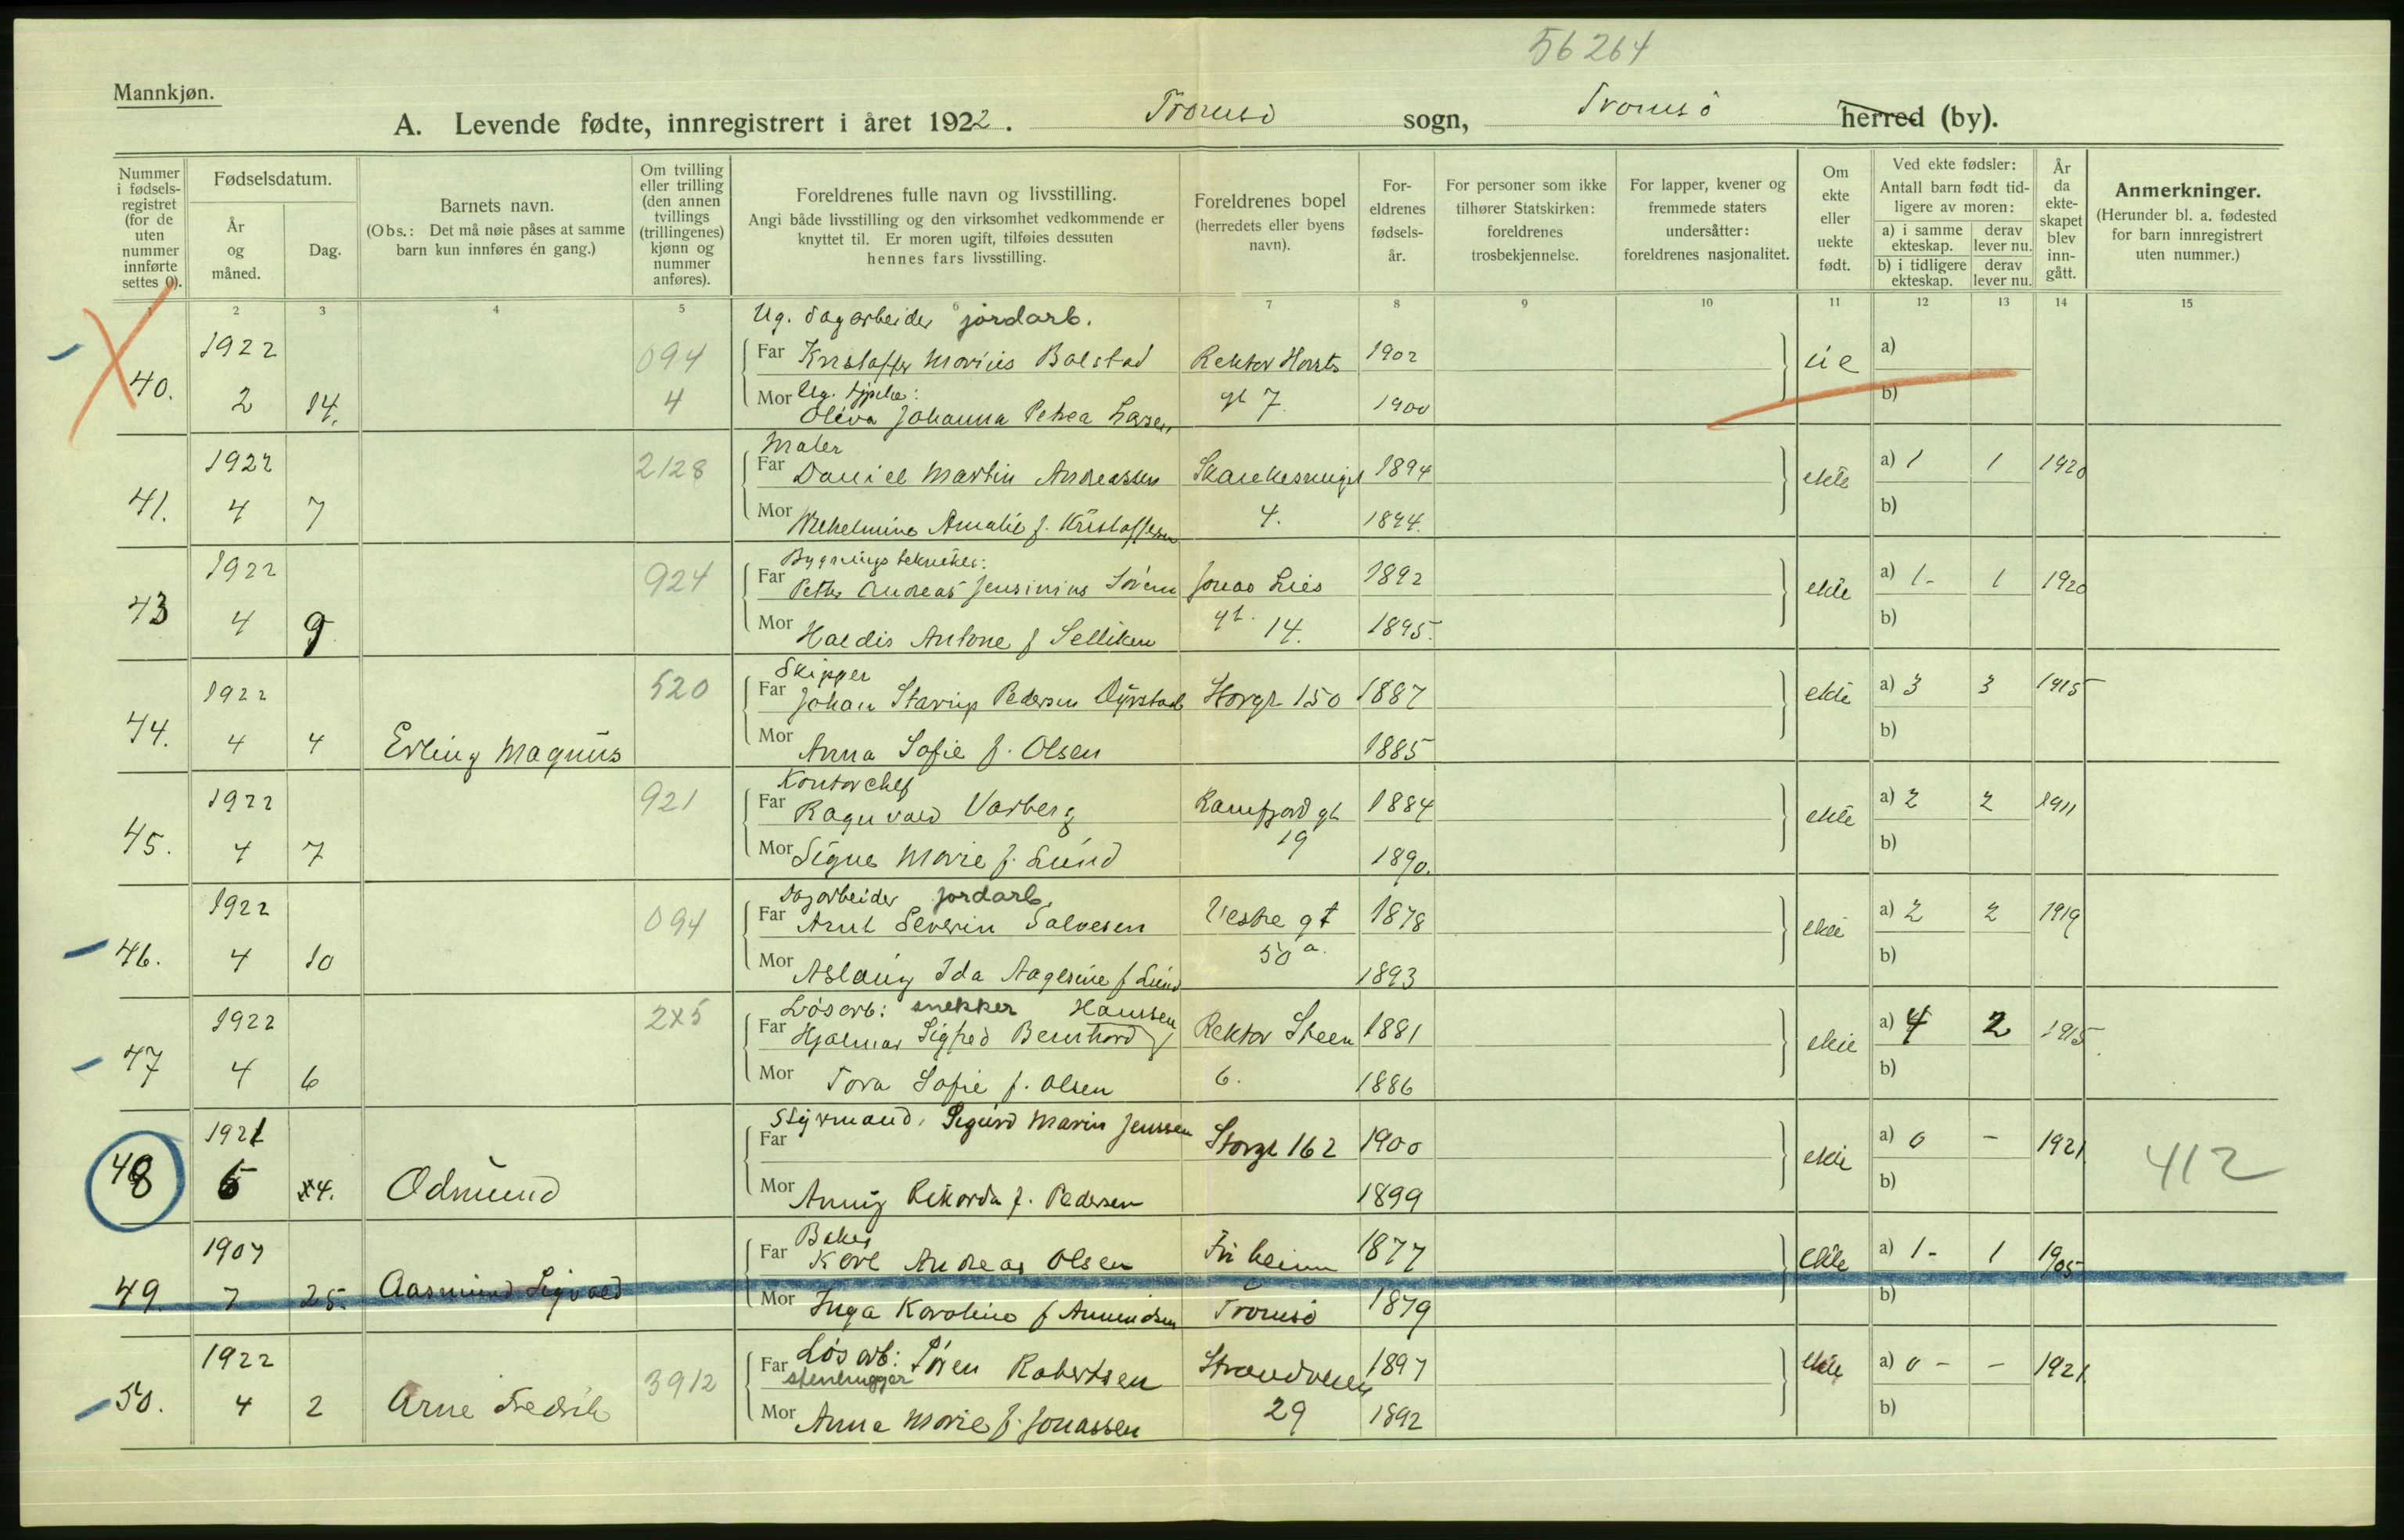 56264
Mannkjøn.
A. Levende fødte, innregistrert i året 1922. Tromsø sogn, Tromsø herred (by).
Nummer i fødsels-registret (for de uten nummer innførte settes 0).
Fødselsdatum.
År og måned.
Dag.
Barnets navn.
(Obs.: Det må nøie påses at samme barn kun innføres én gang.)
Om tvilling eller trilling (den annen tvillings (trillingenes) kjønn og nummer anføres).
Foreldrenes fulle navn og livsstilling.
Angi både livsstilling og den virksomhet vedkommende er knyttet til. Er moren ugift, tilføies dessuten hennes fars livsstilling.
Foreldrenes bopel (herredets eller byens navn).
For-eldrenes fødsels-år.
For personer som ikke tilhører Statskirken: foreldrenes trosbekjennelse.
For lapper, kvener og fremmede staters undersåtter: foreldrenes nasjonalitet.
Om ekte eller uekte født.
Ved ekte fødsler:
Antall barn født tid-ligere av moren:
a) i samme ekteskap.
derav lever nu.
b) i tidligere ekteskap.
derav lever nu.
År da ekte-skapet blev inn-gått.
Anmerkninger.
(Herunder bl. a. fødested for barn innregistrert uten nummer.)
1 2 3 4 5 6 7 8 9 10 11 12 13 14 15
Ug. Dagarbeider jordarb.
1922 094 Far Kristoffer Marius Bolstad Rektor Horsts 1902 ue a)
40. 2 14. 4 Mor Ug. Oliva Johanna Petrea Larsen gt 7. 1900 b)
Maler
1922 2128 Far Daniel Martin Andreassen 1894 ekte a) 1 1 1920
41. 4 7 Mor Wilhelmine Amalie f. Kristoffersen 4. 1894. b)
Bygningstekniker:
1922 924 Far Petter Andreas Jensinius Sørem Jonas Lies 1892 ekte a) 1- 1 1920
43 4 9 Mor Haldis Antone f Selliken gt. 14. 1895. b)
Skipper
1922 520 Far Johan Starup Pedersen Dyrstad Storgt 150 1887 ekte a) 3 3 1915
44. 4 4 Erling Magnus Mor Anna Sofie f. Olsen 1885 b)
Kontorchef
1922 921 Far Ragnvald Varberg Ramfjord gt 1884 ekte a) 2 2 1911
45. 4 7 Mor Signe Marie f. Lund 19 1890. b)
Dagarbeider jordarb.
1922 094 Far Arnt Severin Salvesen Vestre gt 1878 ekte a) 2 2 1919
46. 4 10 Mor Aslaug Ida Aagesine f Lund 50 a. 1893 b)
Løsarb: snekker Hanssen
1922 2x5 Far Hjalmar Sigfred Bernhard Rektor Steen 1881 ekte a) 4 2 1915
47 4 6 Mor Tora Sofie f. Olsen 6. 1886 b)
Styrmand, Sigurd Marin Jenssen
1921 Far Storgt 162 1900 ekte a) 0 - 1921
48 6 4. Odmund Mor Annig Rikarda f. Pedersen 1899 b) 412
Baker
1907 Far Karl Andreas Olsen Fri heim 1877 ekte a) 1- 1 1905
49. 7 25. Aasmund Sigvald Mor Inga Karoline f Amundsen Tromsø 1879 b)
1922 3912 Far Løsarb: Søren Robertsen Strandveien 1897 ekte a) 0 - - 1921
stenhugger
50. 4 2 Arne Fredrik Mor Anna Marie f. Jonassen 29 1892 b)